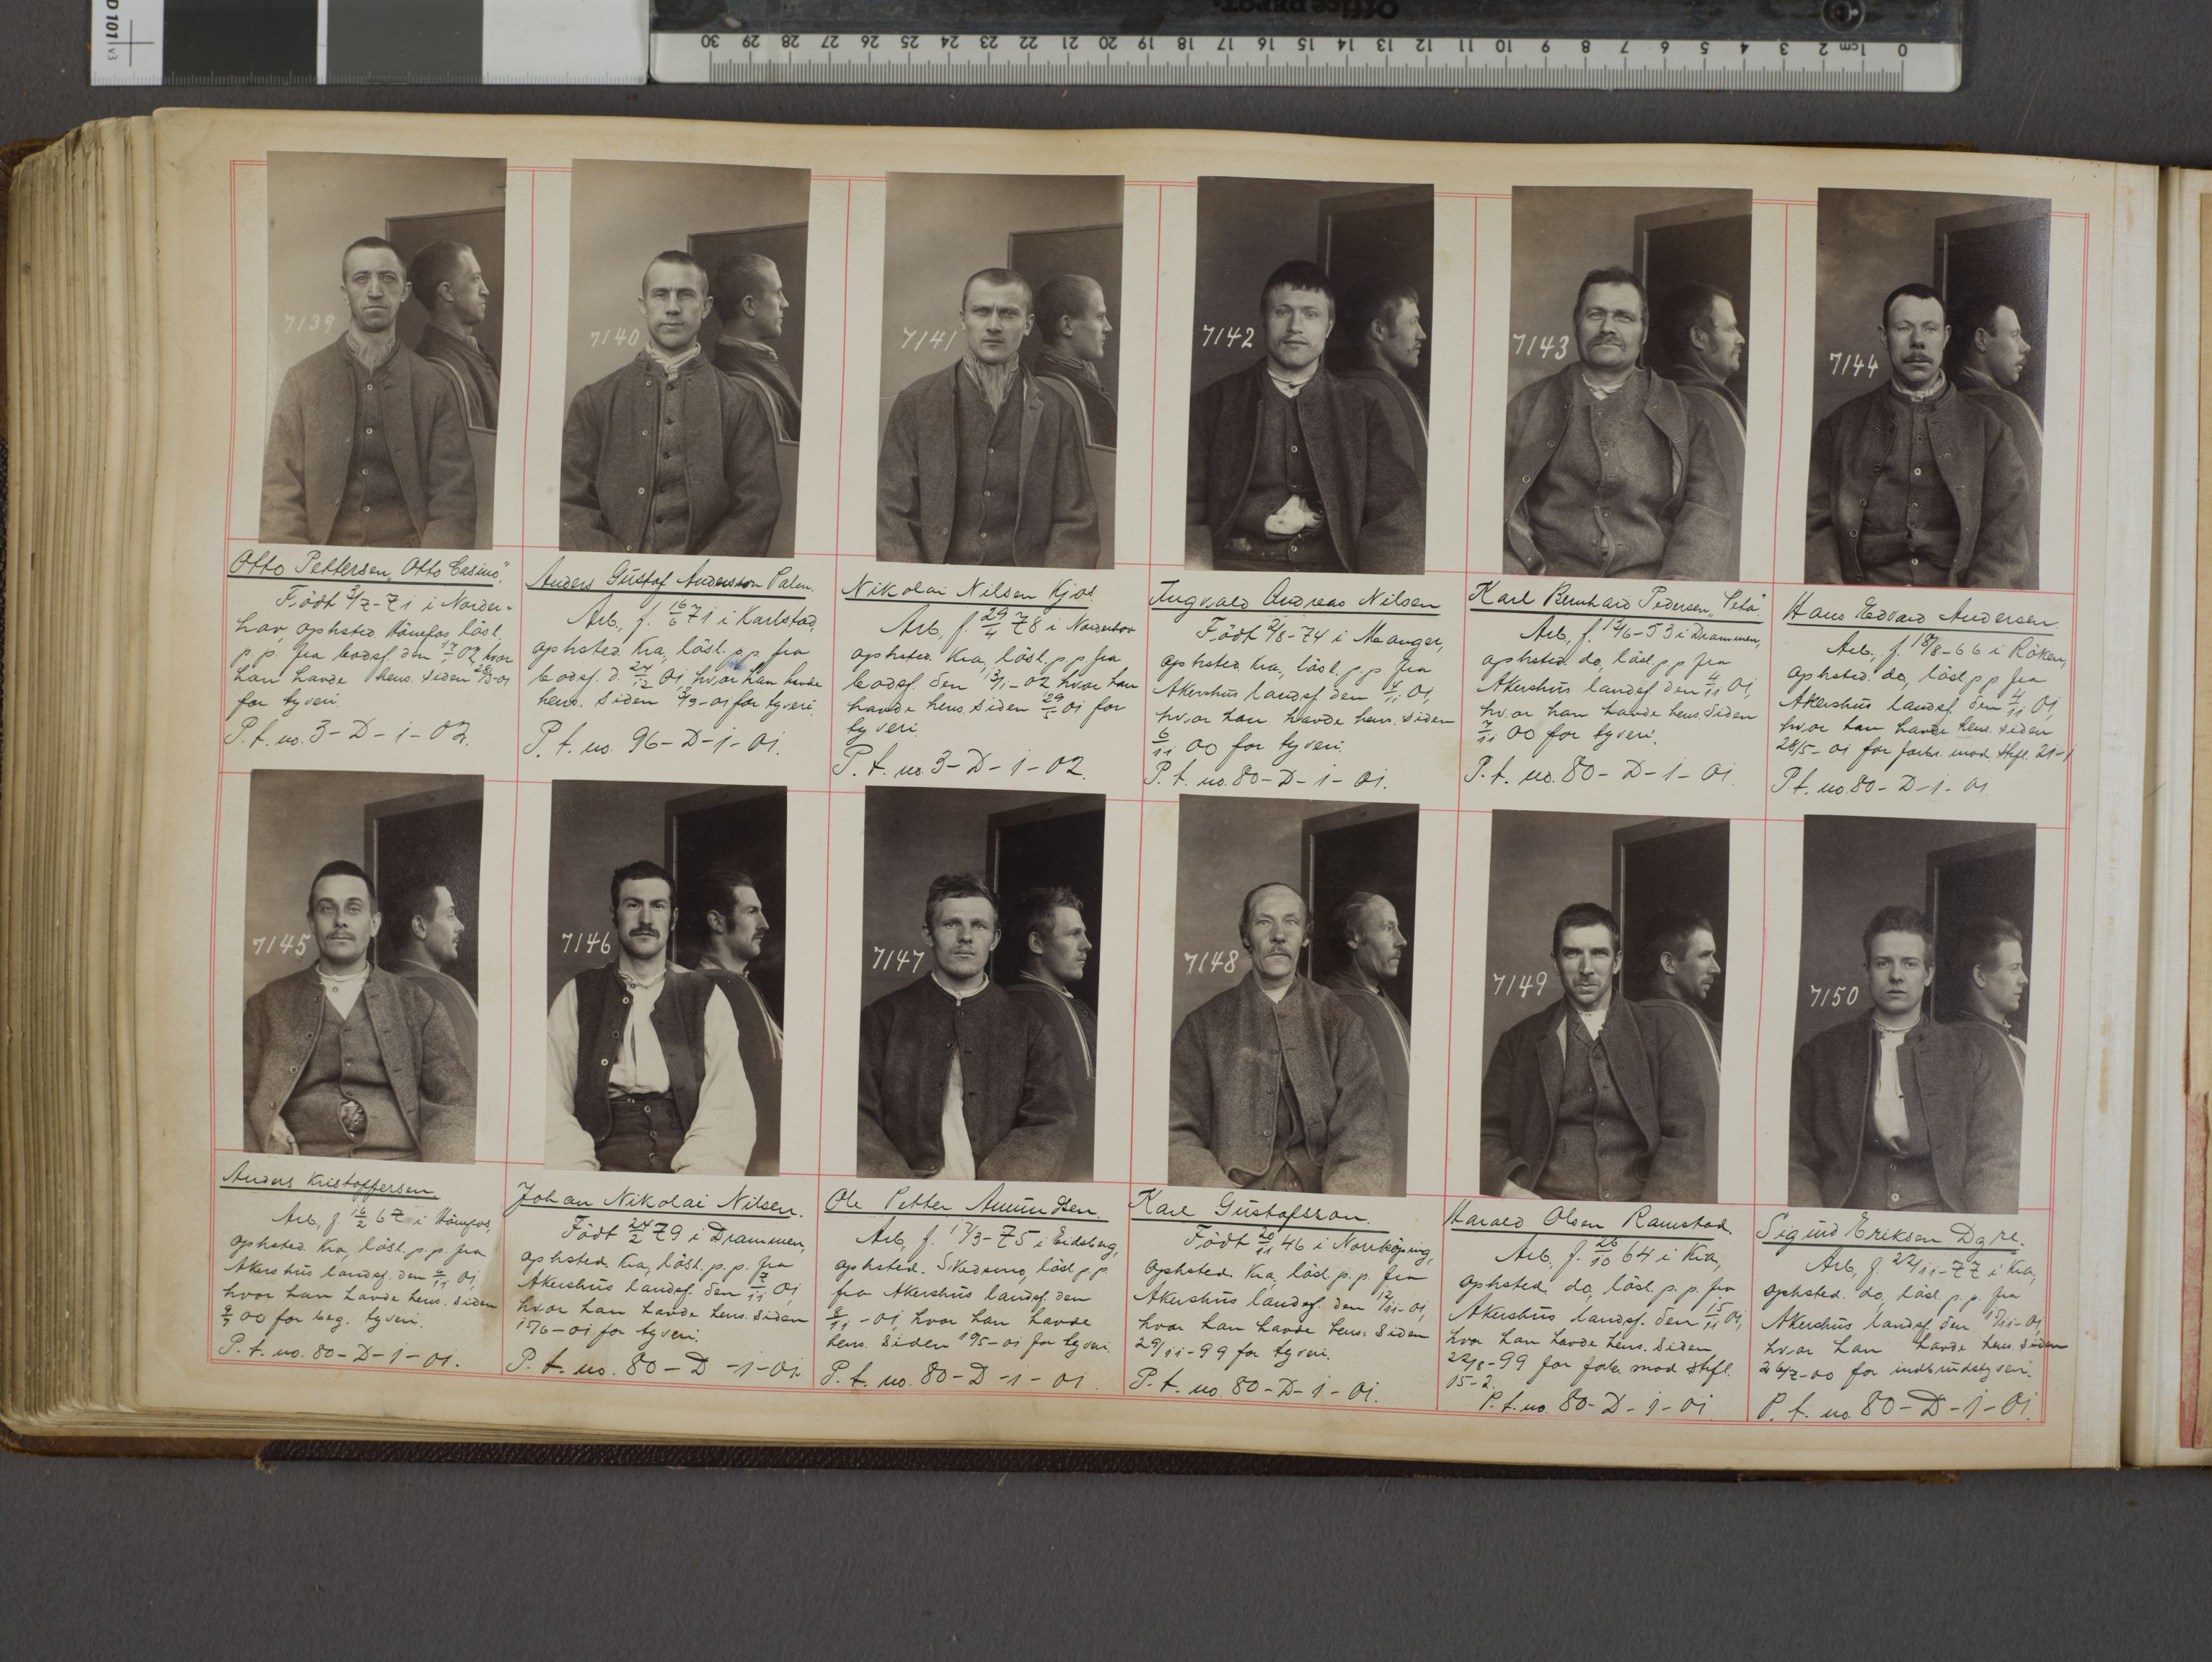 D 101 v3
Office DEPOT.
30 29 28 27 26 25 24 23 22 21 20 19 18 17 16 15 14 13 12 11 10 9 8 7 6 5 4 3 2 1cm 0
7139
7140
7141
7142
7143
7144
Otto Pettersen "Otto Casino".
Född 3/7-71 i Norder-
hov, ophsted. Hönefos, lösl.
p. p. fra bodsf. den 02, hvor
han havde hens. siden
for tyveri.
P. f. no. 3-D-1-02.
Anders Gustaf Andersson Palm.
Arb., f. 16/6 71 i Karlstad,
ophsted. Kra, lösl. p. p. fra
bodsf. d. 24/12 01, hvor han havde
hens. siden 3/9-01 for tyveri.
P. f. no. 96-D-1-01.
Nikolai Nilsen Kjos.
Arb., f. 29/4 78 i Norderhov
ophsted. Kra, lösl. p. p. fra
bodsf. den 3/1-02 hvor han
havde hens. siden 29/5 01 for
tyveri.
P. f. no 3-D-1-02.
Ingvald Andreas Nilsen
Född 2/8-74 i Manger,
ophsted. Kra, lösl. p. p. fra
Akershus landsf. den 4/11 01,
hvor han havde hens. siden
6/11 00 for tyveri.
P. f. no. 80-D-1-01.
Karl Bernhard Pedersen, "Peta"
Arb., f. 12/6-53 i Drammen,
ophsted. do, lösl. p. p. fra
Akershus landsf. den 4/11 01,
hvor han havde hens. siden
7/11 00 for tyveri.
P. f. no. 80-D-1-01
Hans Edvard Andersen
Arb., f. 18/8-66 i Röken,
ophsted. do, lösl. p. p. fra
Akershus landsf. den 4/11 01,
hvor han havde hens. siden
28/5-01 for forbr. mod. Stfl. 21-1
P. f. no. 80-D-1-01
7145
7146
7147
7148
7149
7150
Anders Kristoffersen
Arb., f. 16/2 67 i Hönefos,
ophsted. Kra, lösl. p. p. fra
Akershus landsf. den 6/11 01,
hvor han havde hens. siden
00 for beg. tyveri.
P. f. no. 80-D-1-01.
Johan Nikolai Nilsen.
Född 24/2 79 i Drammen,
ophsted. Kra, lösl. p. p. fra
Akershus landsf. den 7/11 01,
hvor han havde hens. siden
15/6-01 for tyveri.
P. f. no. 80-D-1-01
Ole Petter Amundsen.
Arb., f. 17/3-75 i Eidsberg,
ophsted. Skedsmo, lösl. p. p.
fra Akershus landsf. den
8/11-01, hvor han havde
hens. siden 19/5-01 for tyveri.
P. f. no. 80-D-1-01.
Karl Gustafsson.
Född 20/11 46 i Norrköping,
Ophsted. Kra, lösl. p. p. fra
Akershus landsf. den 12/11-01,
hvor han havde hens. siden
29/11-99 for tyveri.
P. f. no. 80-D-1-01.
Harald Olsen Ramstad.
Arb., f. 26/10 64 i Kra,
ophsted. do, lösl. p. p. fra
Akershus landsf. den 15/11 01,
hvor han havde hens. siden
22/8-99 for forbr. mod Stfl.
15-2.
P. f. no. 80-D-1-01
Sigurd Eriksen Dgre.
Arb., f. 22/11-77 i Kra,
ophsted. do, lösl. p. p. fra
Akershus landsf. den 15/11-01,
hvor han havde hens. siden
26/7-00 for indbrudstyveri.
P. f. no. 80-D-1-01.